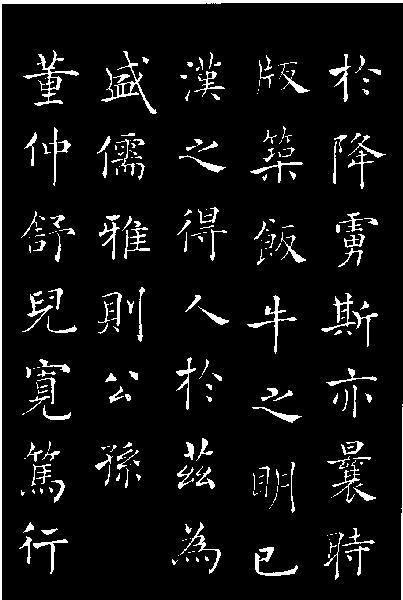 於降虜斯亦曩時
版築飯牛之明已
漢之得人於茲為
盛儒雅則公孫
董仲舒兒寬篤行